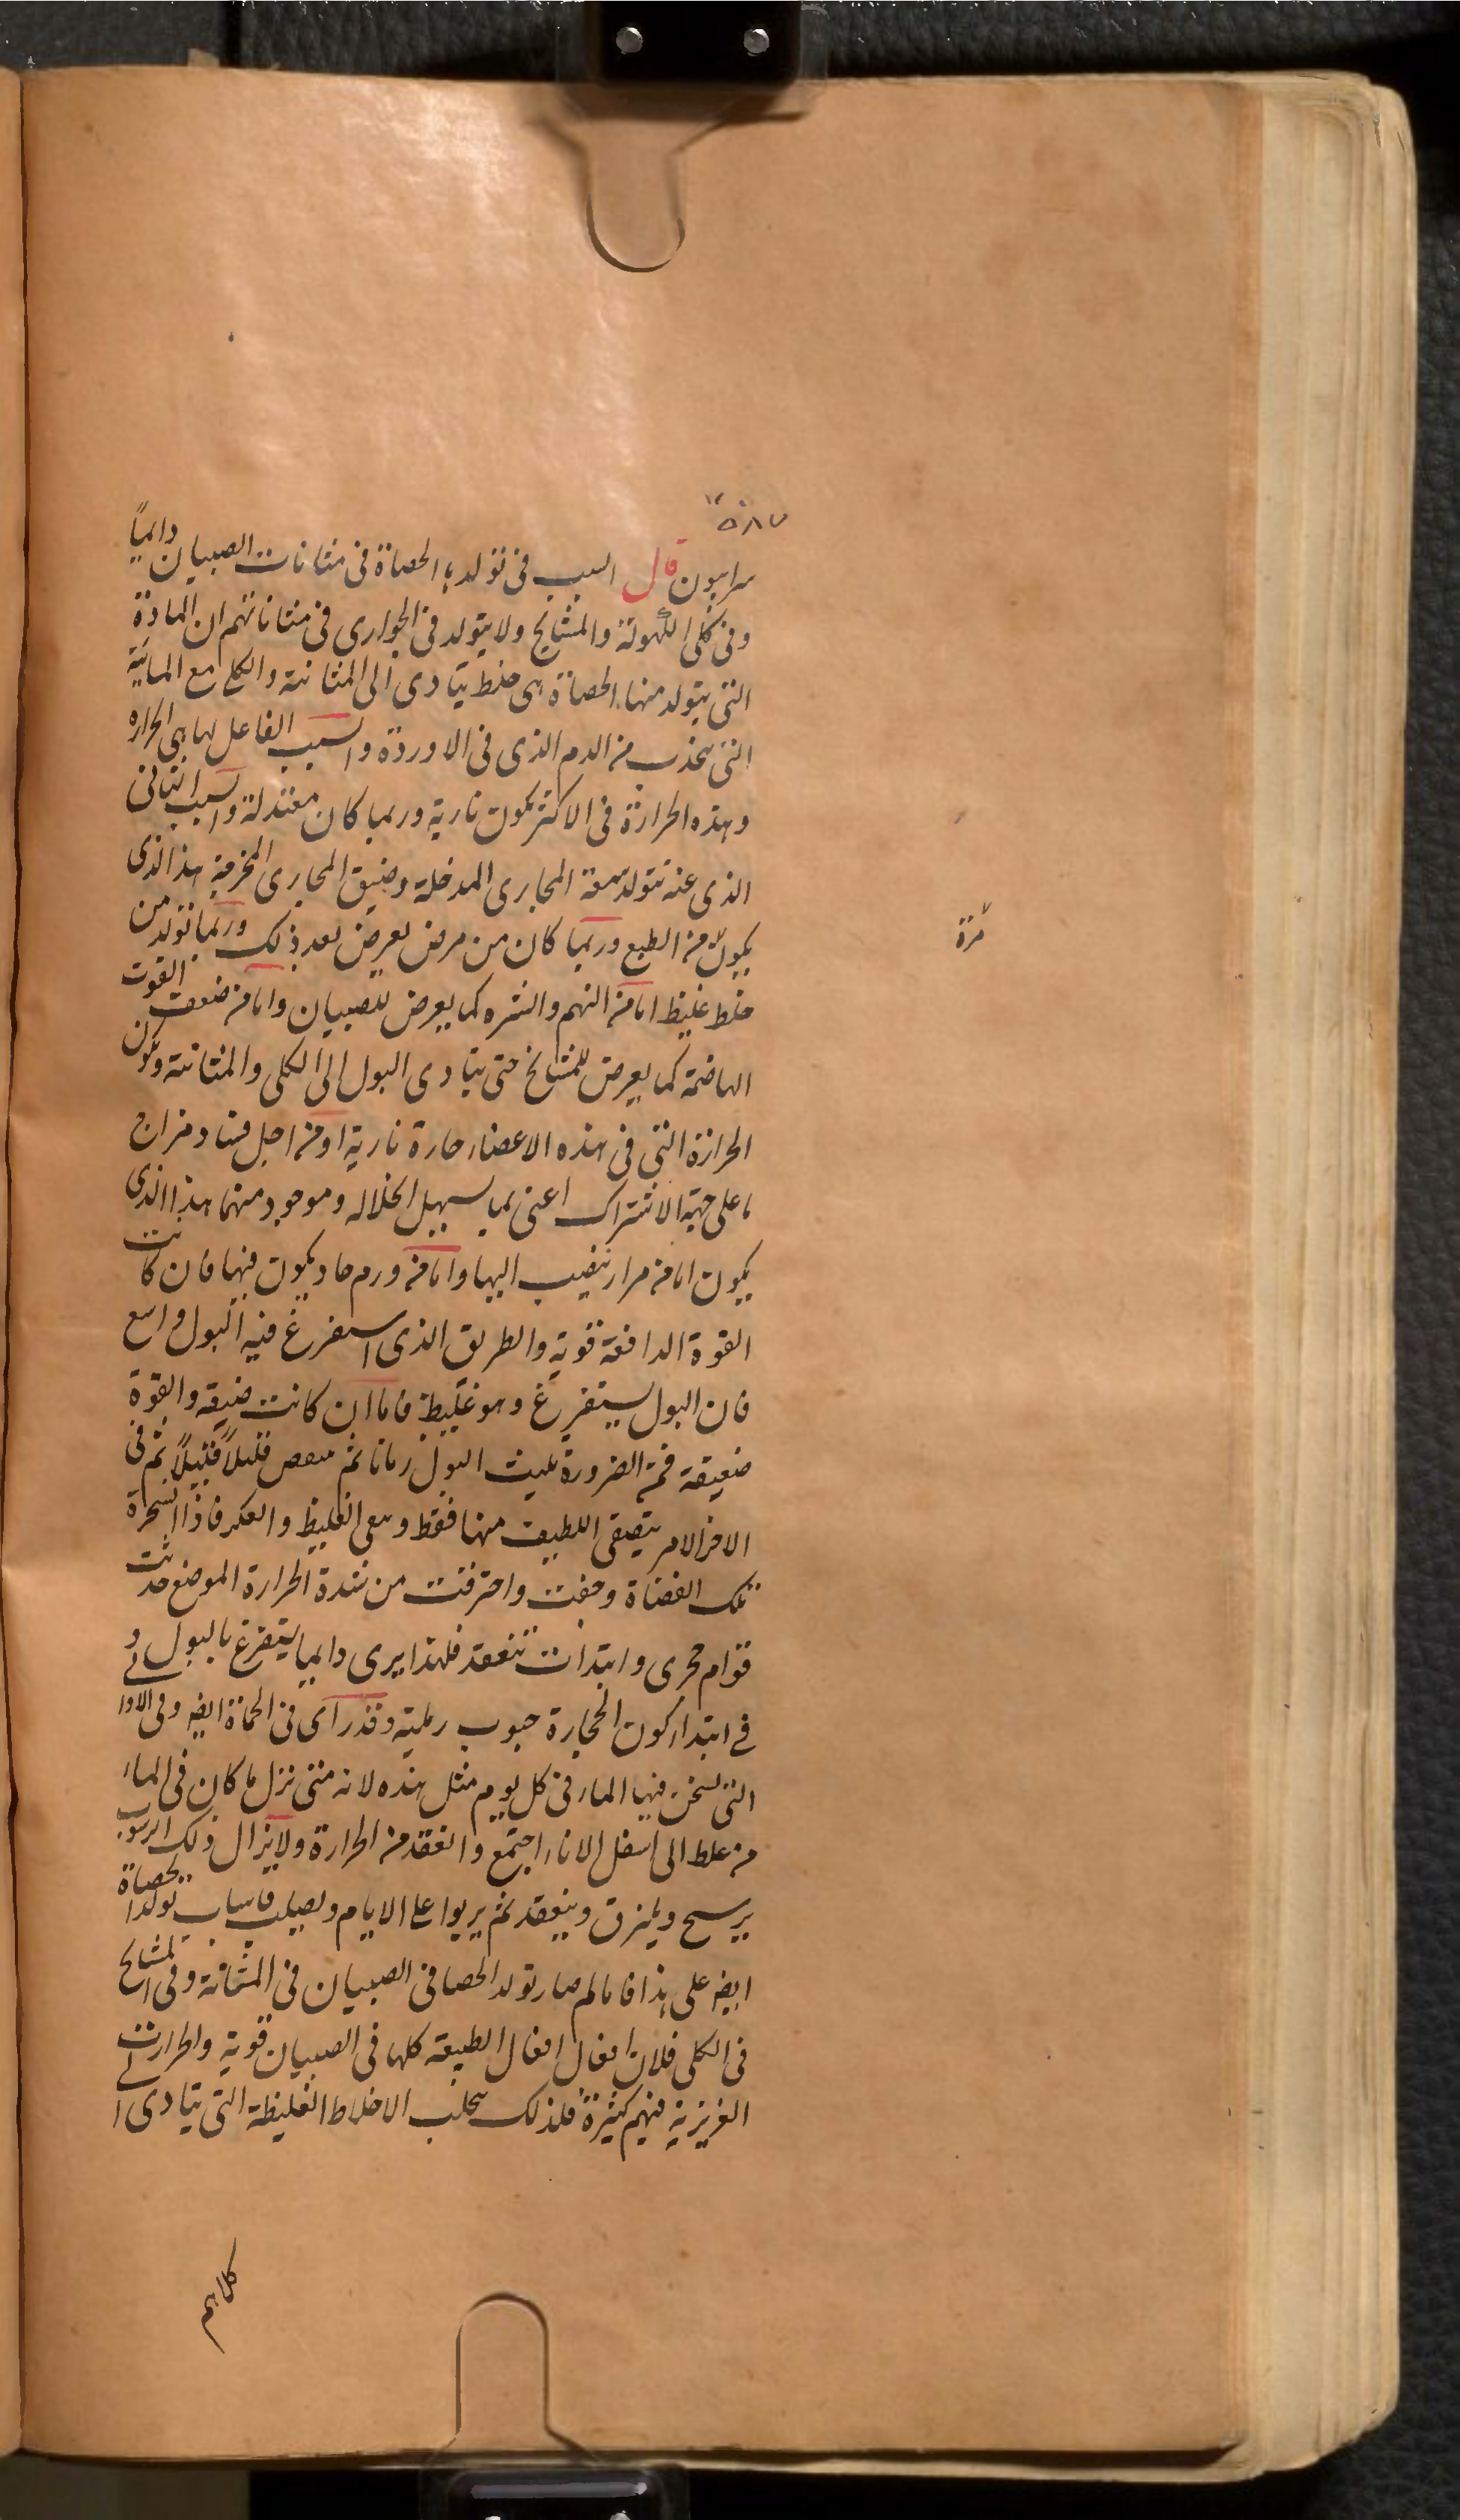 سرابيون قال السبب فى تولد الحصاة فى مثانات الصبيان دايماً
وفى كلى الكهولة والمشايخ ولا يتولد فى الجوارى فى مثاناتهم ان المادة
التى يتولد منها الحصاة هى خلط يتادى الى المثانة والكلى مع المائية
التى يجذب من الدم الذى فى الاوردة والسبب الفاعل لها هى الحراره
وهذه الحرارة فى الاكثر يكون نارية وربما كان معتدلة والسبب الثانى
الذى عنه تتولد سعة المجارى المدخلة وضيق المجارى المخرجة هذا الذى
يكون من الطبع وربما كان من مرض يعرض بعد ذلك وربما تولد من
مرة
خلط غليظ اما من النهم والشره كما يعرض للصبيان واما من ضعف القوت
الهاضمة كما يعرض للمشايخ حتى يتادى البول الى الكلى والمثانة وتكون
الحرارة التى فى هذه الاعضاء حارة نارية او من اجل فساد مزاج
على جهة الاشتراك اعنى بما يسهل انحلاله وموجود منهما هذا الذى
يكون اما من مرار ينصب اليها واما من ورم حاد يكون فيها فان كانت
القوة الدافعة قوية والطريق الذى استفرغ فيه البول واسع
فان البول يستفرغ وهو غليظ فاما ان كانت ضيقه والقوة
ضعيفة فمن الضرورة يلبث البول زمانا ثم قليلاً قليلاً ثم فى
الاخر الامر يتصفى اللطيف منها فقط وبقى الغليظ والعكر فاذا
تلك الفضاة وجفت واحترقت من شدة الحرارة الموضع حدثت
قوام حجرى وابتدات تنعقد فلهذا يرى دايما يستفرغ بالبول و
فى ابتدا كون الحجارة حبوب رملية وقد راى فى الحماة ايضا وفى الاوا
التى يسخن فيها الماء فى كل يوم مثل هذه لانه متى نزل ما كان فى الماء
من غلظ الى اسفل الاناء اجتمع وانعقد من الحرارة ولا يزال ذلك الرسوب
يرسخ ويلزق وينعقد ثم يربوا على الايام ويصلب فاسباب تولد الحصاة
ايضا على هذا فاما لم صار تولد الحصا فى الصبيان فى المثانة وفى المشايخ
فى الكلى فلان افعال افعال الطبيعة كلها فى الصبيان قوية والحرارت
الغريزية فيهم كثيرة فلذلك يجلب الاخلاط الغليظة التى يتادى ا